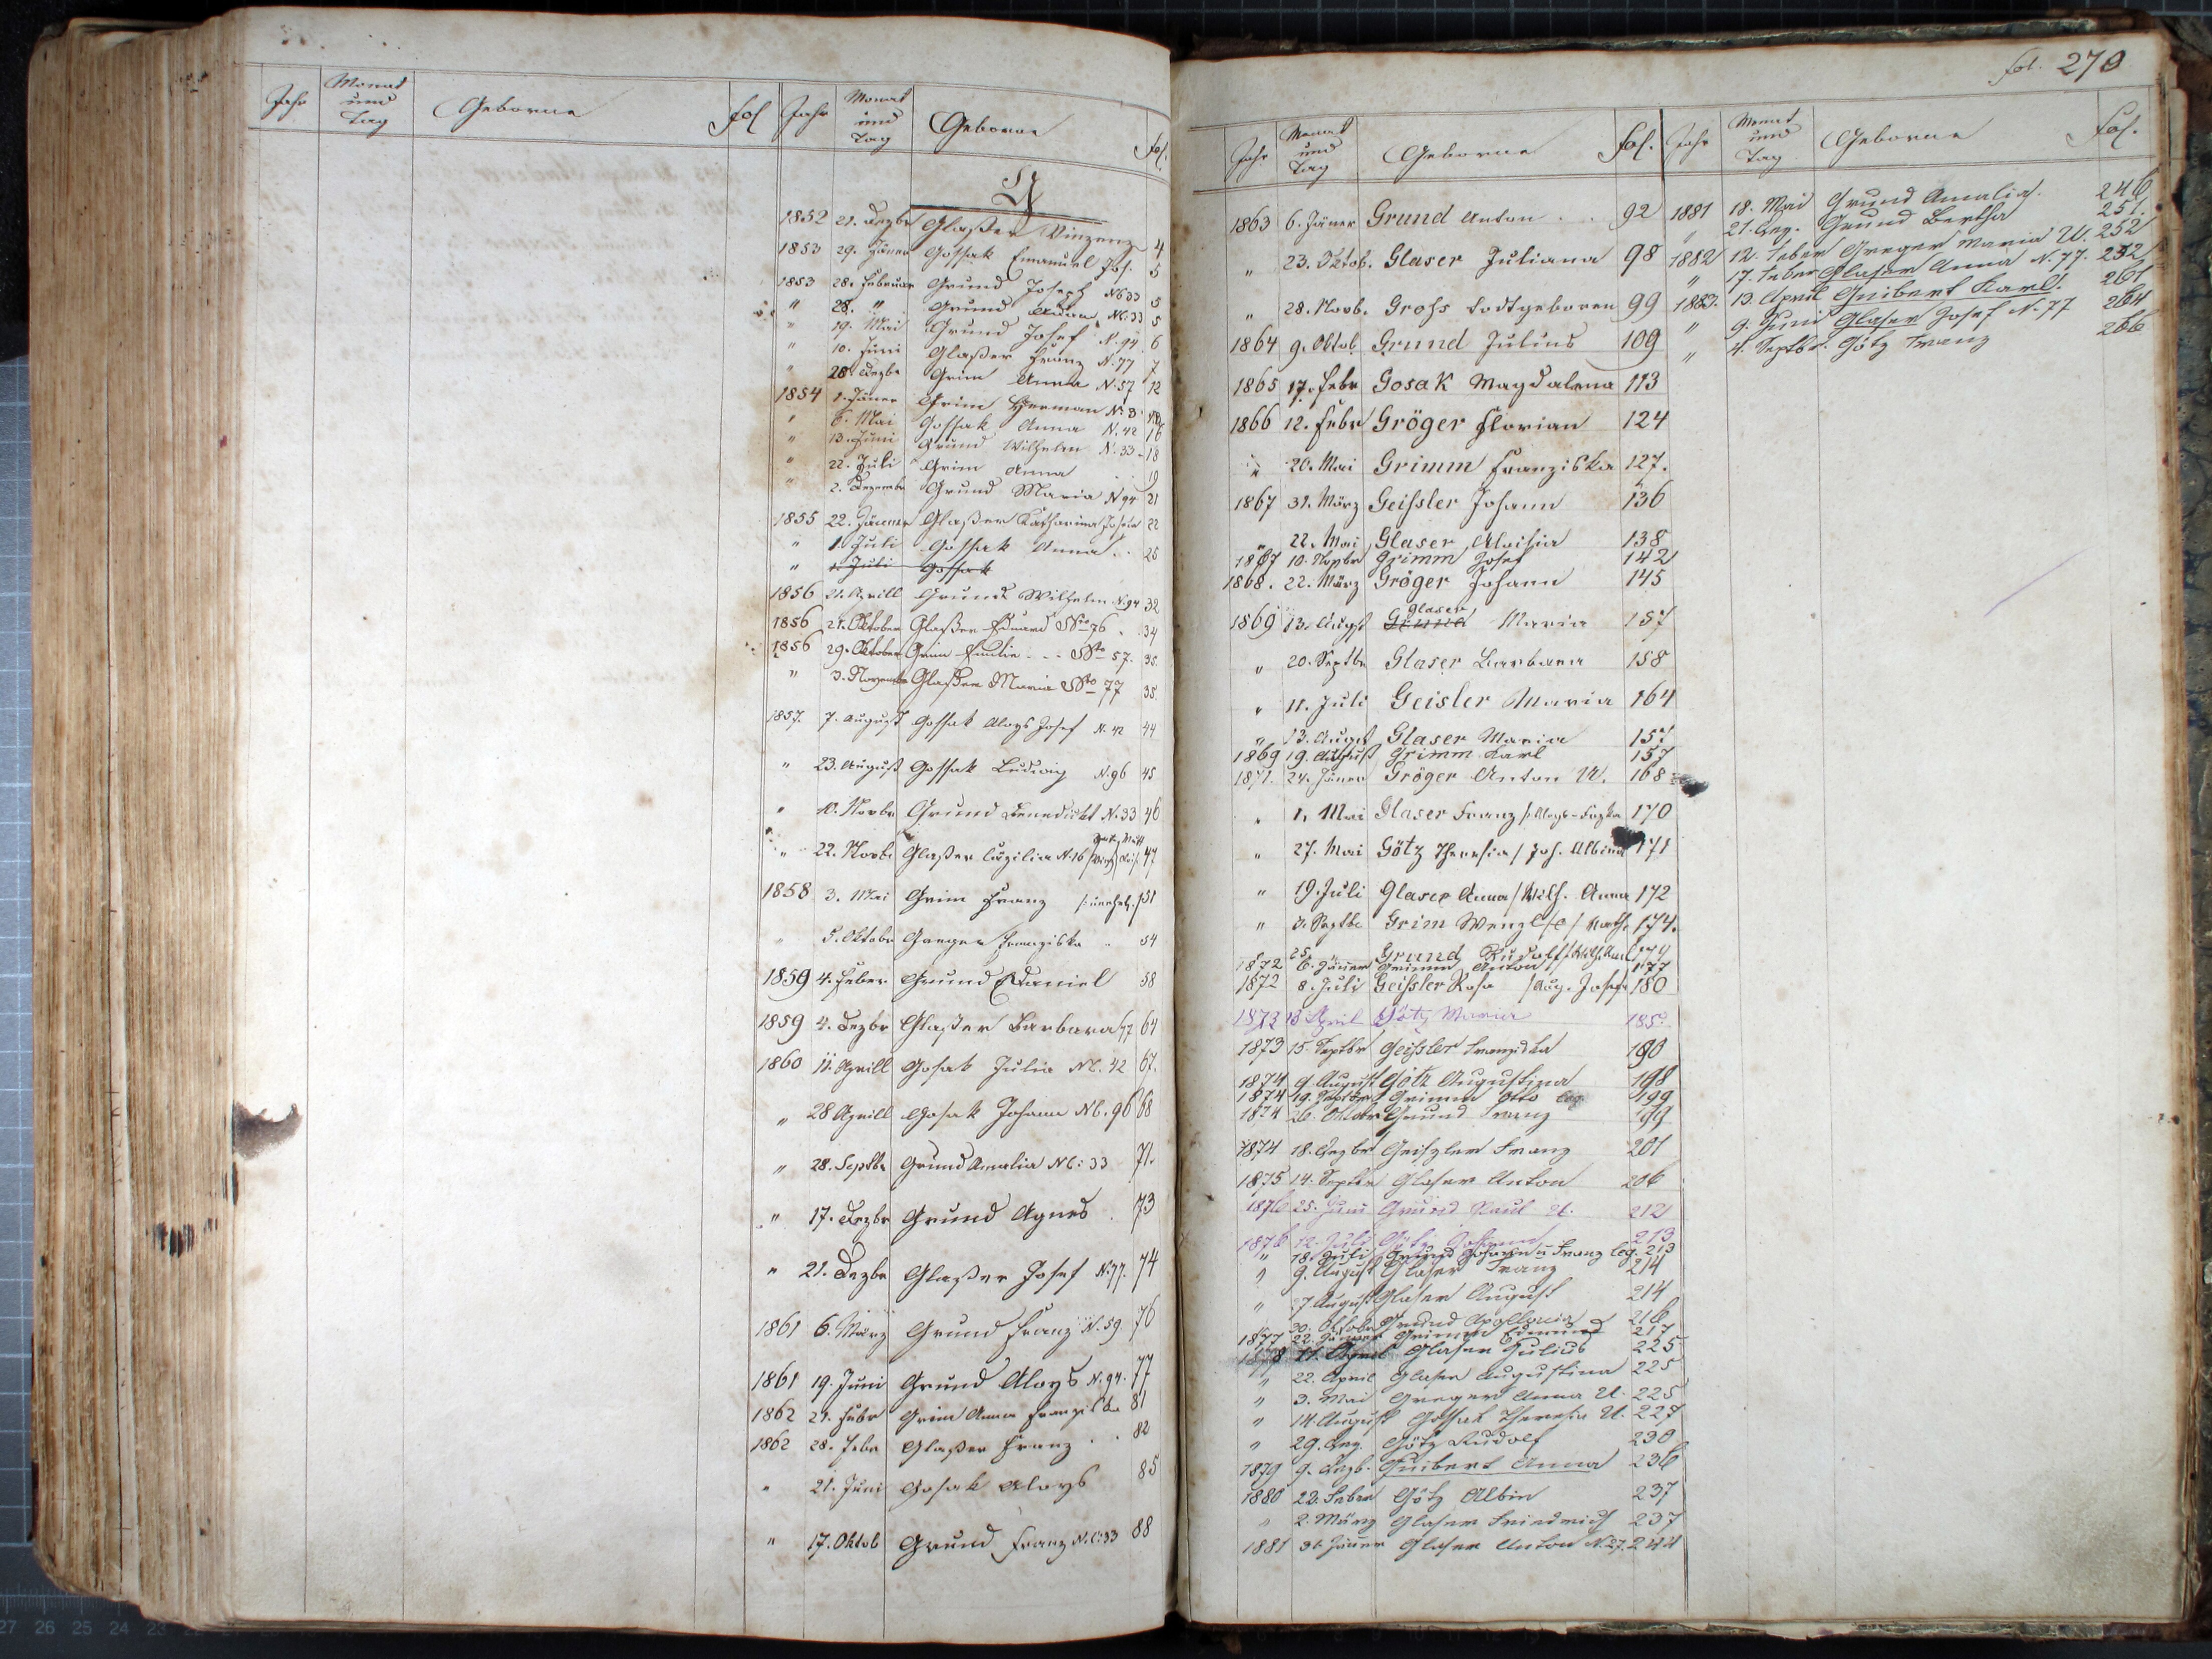 Jahr Monat und Tag Geborne fol Jahr Monat und Tag Geborne Fol.
G
1852 21. Dezbr Glaßer Vinzenz 4
1853 29. Jäner Gossak Emanuel Jos. 5
1853 28. Februar Grund Joseph N 33 5
" 28. " Grund N: 33 5
" 19. Mai Grund Josef N. 94 6
" 10. Juni Glaßer Franz N. 77 7
" 28 Dezbr Grim Anna N. 57 12
1854 1. Jäner Grim Herman N.
" 6. Mai Gossak Anna N. 42 16
" 13. Juni Grund Wilhelm N. 33 18
" 22. Juli Grim Anna 19
" 2. Dezembr Grund Maria N 94 21
1855 22. Jänner Glaßer Katharina 22
" 1. Juli Gossak Anna 25
" 1. Juli Gossak
1856 21. Aprill Grund Wilhelm N. 94 32
1856 21. Oktober Glaßer Eduard Nro 76 34
1856 29. Oktober Grim Emilie Nro 57. 35.
" 3. November Glaßer Maria Nro 77 35.
1857. 7. August Gossak Aloys Josef N. 42 44
" 23. August Gossak Ludwig N. 96 45
" 10. Novbr Grund Benedickt N. 33 46
" 22. Novb. Glaßer Cäzilia N. 16 47
1858 3. Mai Grim Franz /: unehel. 51
" 5. Oktobr Franziska 54
1859 4. Feber Grund Daniel 58
1859 4. Dezbr Glaßer Barbara 77 64
1860 11. Aprill Gosak Julia N. 42 67.
" 28 Aprill Gosak Johann N. 96 68
" 28. Septbr Grund Amalia N: 33 71.
" 17. Dezbr Grund Agnes 73
" 21. Dezbr Glaßer Josef N. 77. 74
1861 6. März Grund Franz N. 59. 76
1861 19. Juni Grund Aloys N. 94. 77
1862 21. Febr Grim Anna Franziska 81
1862 28. Febr Glaßer Franz 82
" 21. Juni Gosak Aloys 85
" 17. Oktob Grund Franz N. C: 33 88
fol. 270
Jahr Monat und Tag Geborne Fol. Jahr Monat und Tag Geborne Fol.
1863 6. Jäner Grund Anton 92
" 23. Oktob. Glaser Juliana 98
" 28. Novb. Groß todtgeboren 99
1864 9. Oktob Grund Julius 109
1865 17. Febr Gosak Magdalena 113
1866 12. Febr Gröger Florian 124
" 20. Mai Grimm Franziska 127.
1867 31. März Geißler Johann 136
" 22. Mai Glaser Aloisia 138
1867 10. Novbr Grimm Josef 142
1868. 22. März Gröger Johann 145
1869 13. Augst Glaser Maria 157
" 20. Septbr Glaser Barbara 158
" 11. Juli Geisler Maria 164
" 13. August Glaser Maria 157
1869 19. August Grimm Karl 157
1871. 24. Jäner Gröger Anton U. 168
" 1. Mai Glaser Franz 170
" 27. Mai Götz Theresia / Jos. Albina 171
" 19. Juli Glaser Anna / Wilh. Anna 172
" 3. Septbr Grim Wenzl 174.
25. " Grund Rudolf 174
1872 6. Jänner Grimm Anton 177
1872 8. Juli Geißler Rosa / Aug. Josefa 180
1873 13 April Götz Maria 185.
1873 15. Septbr Geißler Franziska 190
1874 9. August Götz Augustina 198
1874 19. Septbr Grimm Otto 199
1874 26. Oktober Grund Franz 199
1874 18. Dezbr Geißler Franz 201
1875 14. Septbr Glaser Anton 206
1876 25. Juni Grund Paul U. 212
1876 12. Juli Götz Johann 213
" 18. Juli Grund Johann u Franz leg. 213
" 9. August Glaser Franz 214
" 27 August Glaser August 214
" 30. Oktober Grund Apollonia 216
1877 22. Jänner Grimm Edmund 217
1878 11. April Glaser Julius 225
" 22. April Glaser Augustina 225
" 3. Mai Greger Anna U. 225
" 14. August Gossak Theresia U. 227
" 29. Dez. Götz Rudolf 230
1879 9. Dezb. Guibert Anna 236
1880 23. Feber Götz Albin 237
" 2. März Glaser Friedrich 237
1881 31. Jänner Glaser Anton N. 27. 244
1881 18. Mai Grund Amalia. 246
" 21. Dez. Grund Bertha 251.
1882 12. Feber Greger Maria U. 252
" 17. Feber Glaser Anna N. 77. 252
1883. 13. April Guibert Karl. 261
" 9. Juni Glaser Josef N. 77 264
" 4. Septbr. Götz Franz 266